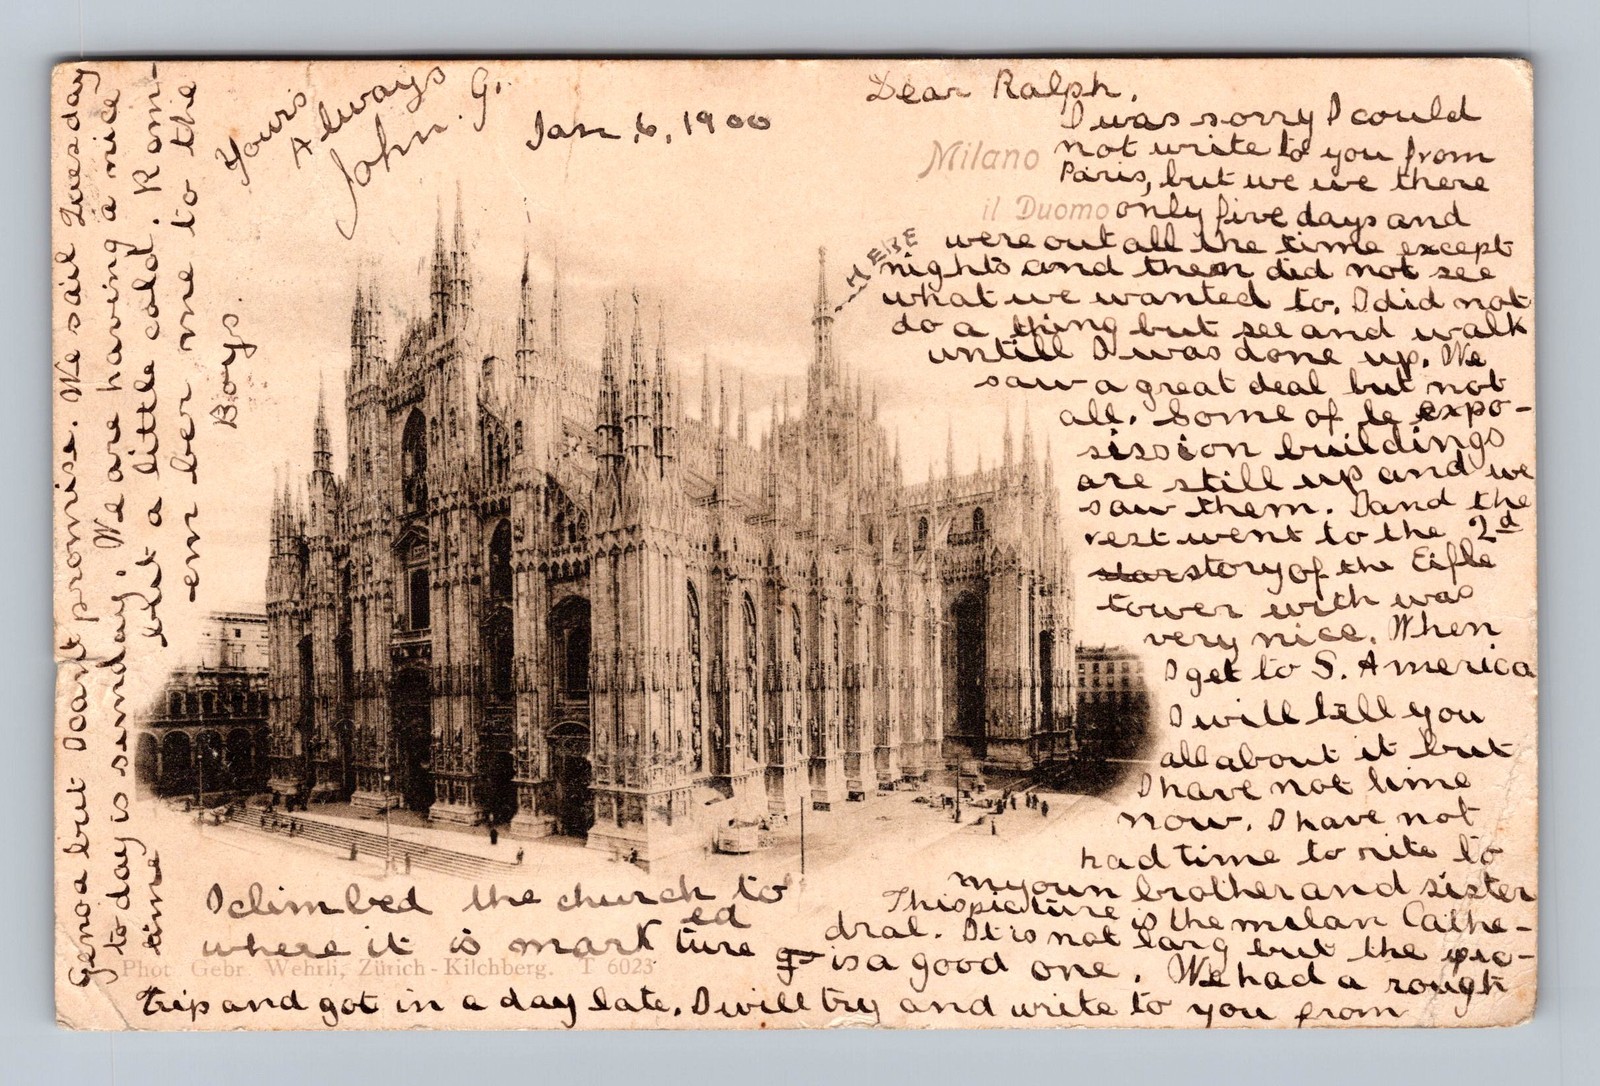 Jan. 6, 1900
Dear Ralph,
I was sorry I could
not write to you from
Paris, but we we there
only five days and
were out all the time except
nights and then did not see
what we wanted to. I did not
do a thing but see and walk
untill I was done up. We
saw a great deal but not
all. Some of le expo-
sission buildings
are still up and we
saw them. I and the
rest went to the 2d
story of the Eifle
tower wich was
very nice. When
I get to S. America
I will tell you
all about it but
I have not time
now. I have not
had time to rite to
my oun brother and sister
This picture is the milan Cathe-
dral. It is not larg but the pic-
ture is a good one. We had a rough
trip and got in a day late. I will try and write to you from
Genoa but I cant promise. We sail Tuesday
to day is sunday. We are having a nice
time but a little cold. Rem-
em ber me to the
Boys.
Yours
Always
John. G.
I climbed the church to
where it is marked
HERE
Milano
il Duomo
Phot. Gebr. Wehrli, Zürich-Kilchberg. T 6023